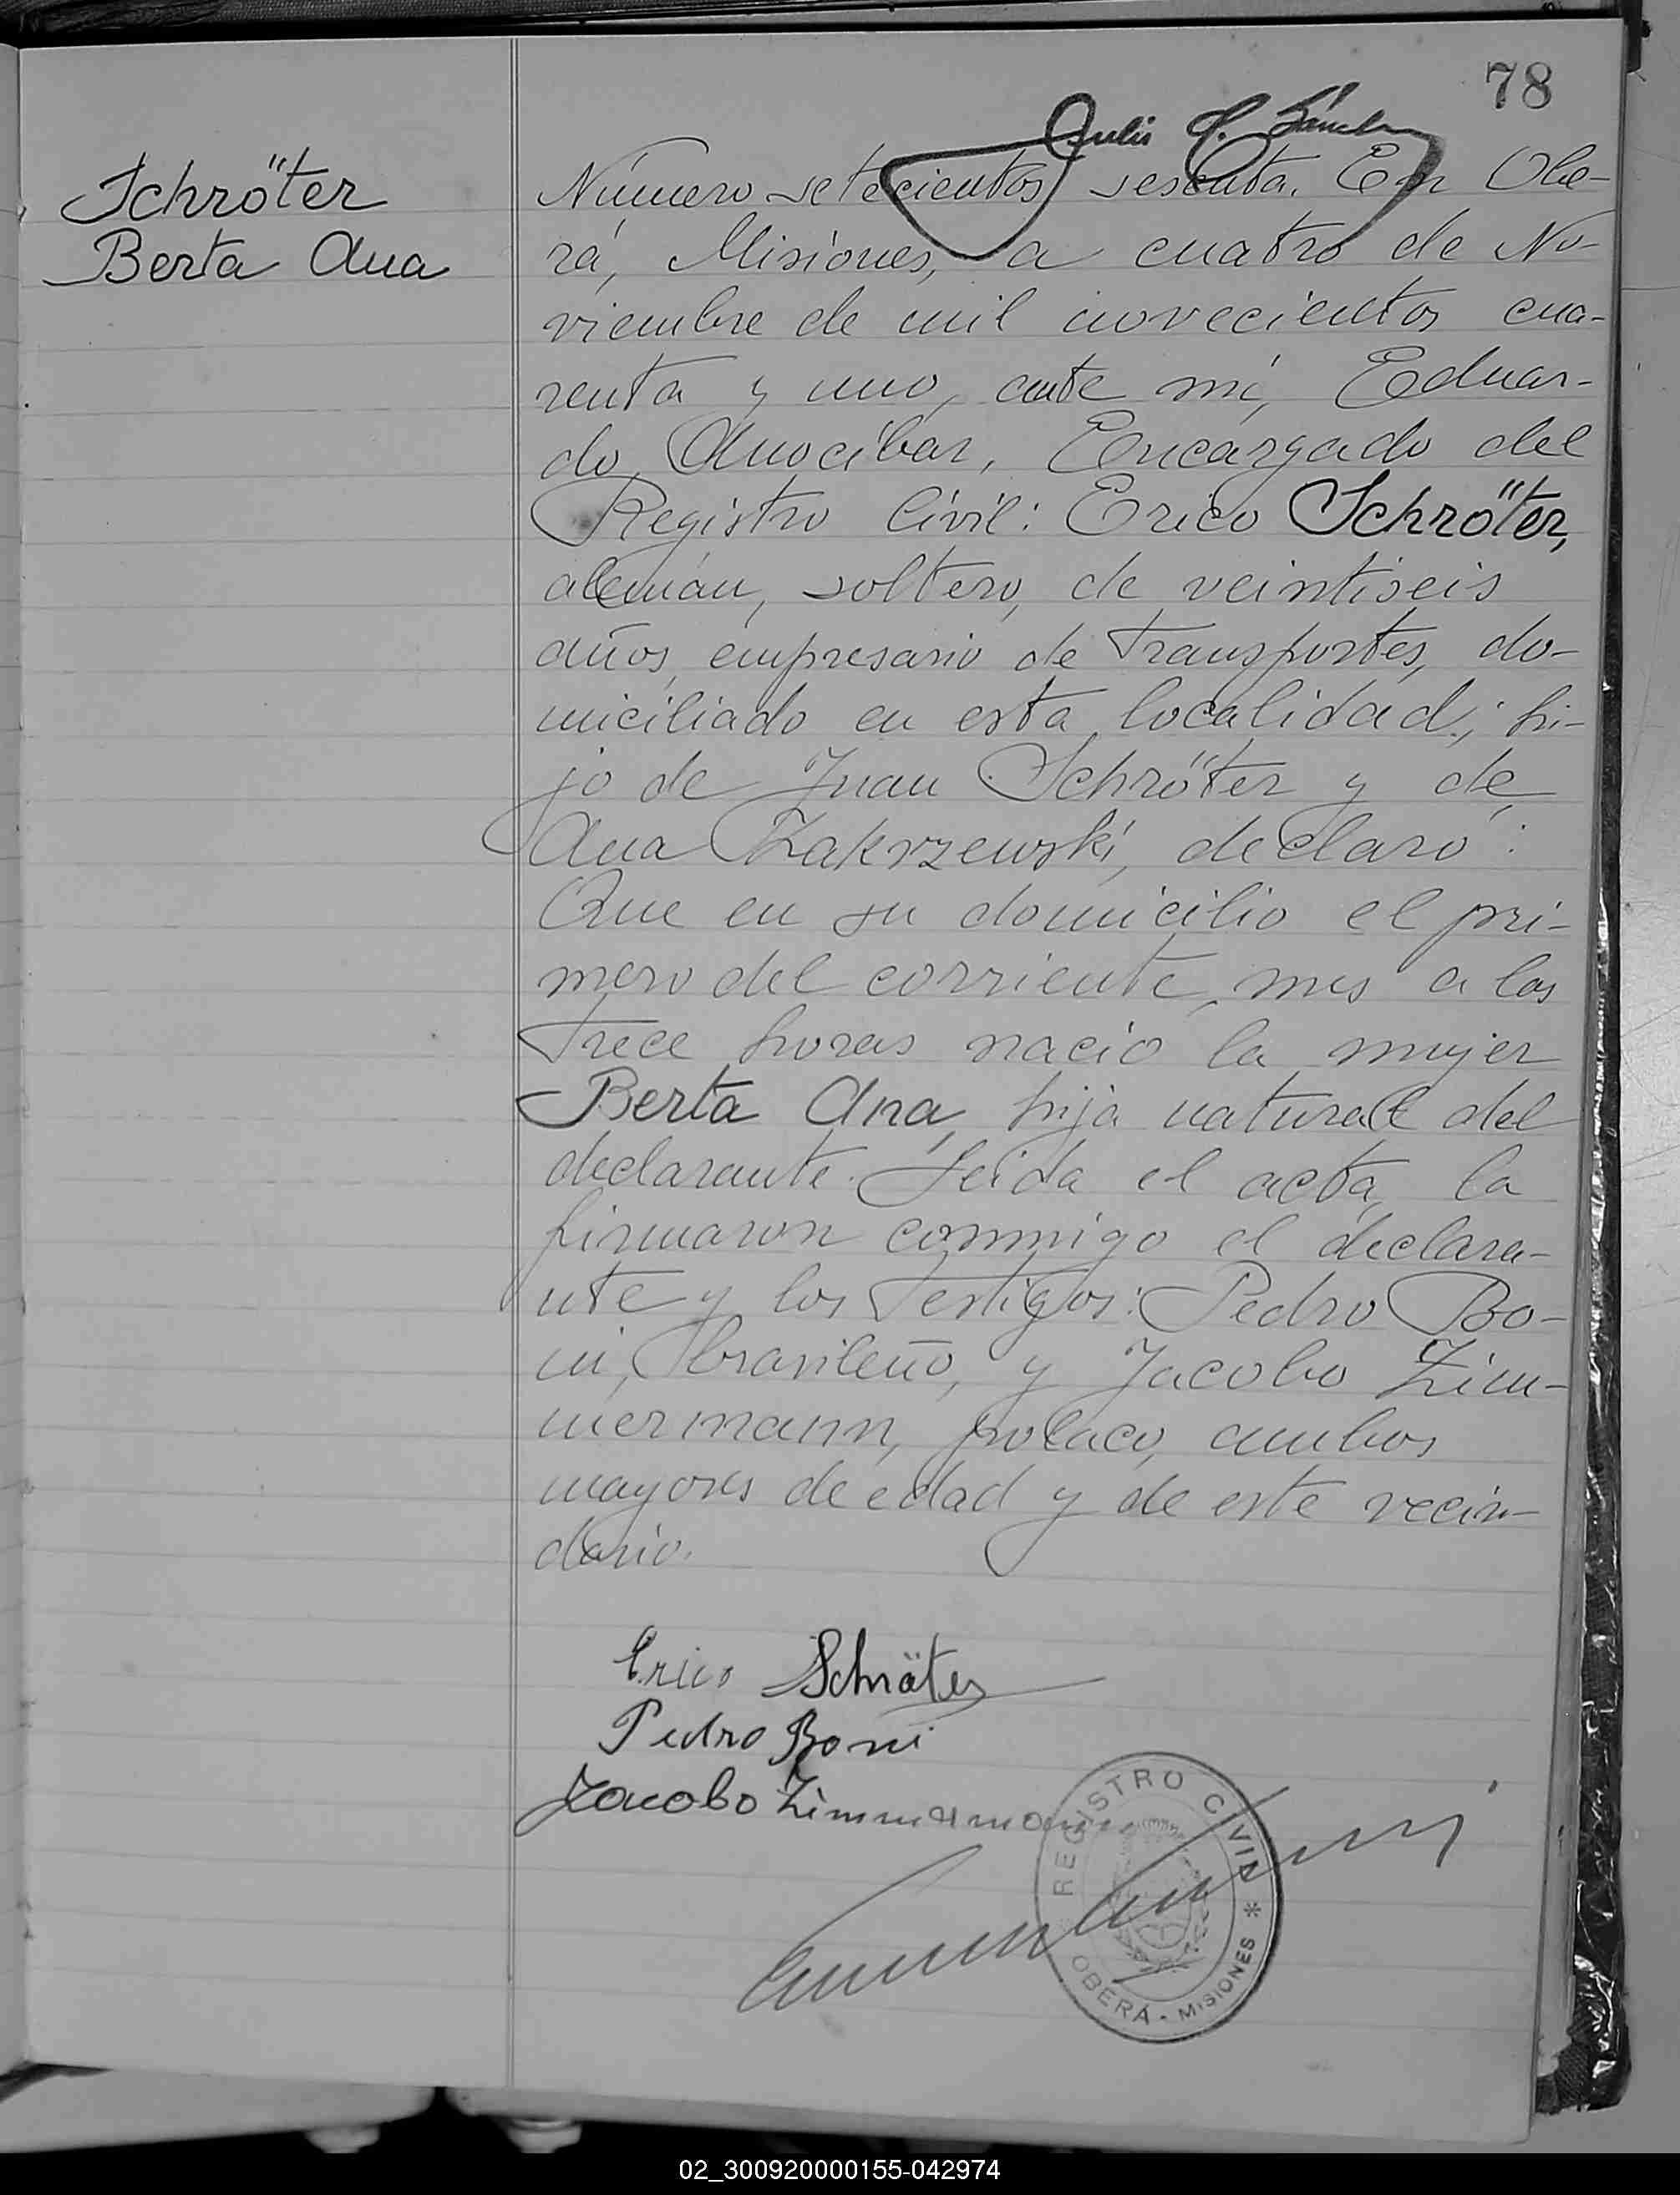 78
Schröter
Berta Ana
Número setecientos sesenta. En Obe-
rá, Misiones, a cuatro de No-
viembre de mil novecientos cua-
renta y uno, ante mí, Eduar-
do Anocíbar, Encargado del
Registro Civil: Erico Schröter,
alemán, soltero, de veintiseis
años, empresario de transportes, do-
miciliado en esta localidad; hi-
jo de Juan Schröter y de
Ana Zakrzewski, declaró:
Que en su domicilio el pri-
mero del corriente mes a las
trece horas nació la mujer
Berta Ana, hija natural del
declarante. Leida el acta, la
firmaron conmigo el declara-
nte y los testigos: Pedro Bo-
ni, brasileño, y Jacobo Zim-
mermann, polaco, ambos
mayores de edad y de este vecin-
dario.
Erico Schröter
Pedro Boni
Jacobo Zimmermann
REGISTRO CIVIL *
OBERÁ - MISIONES
02_300920000155-042974